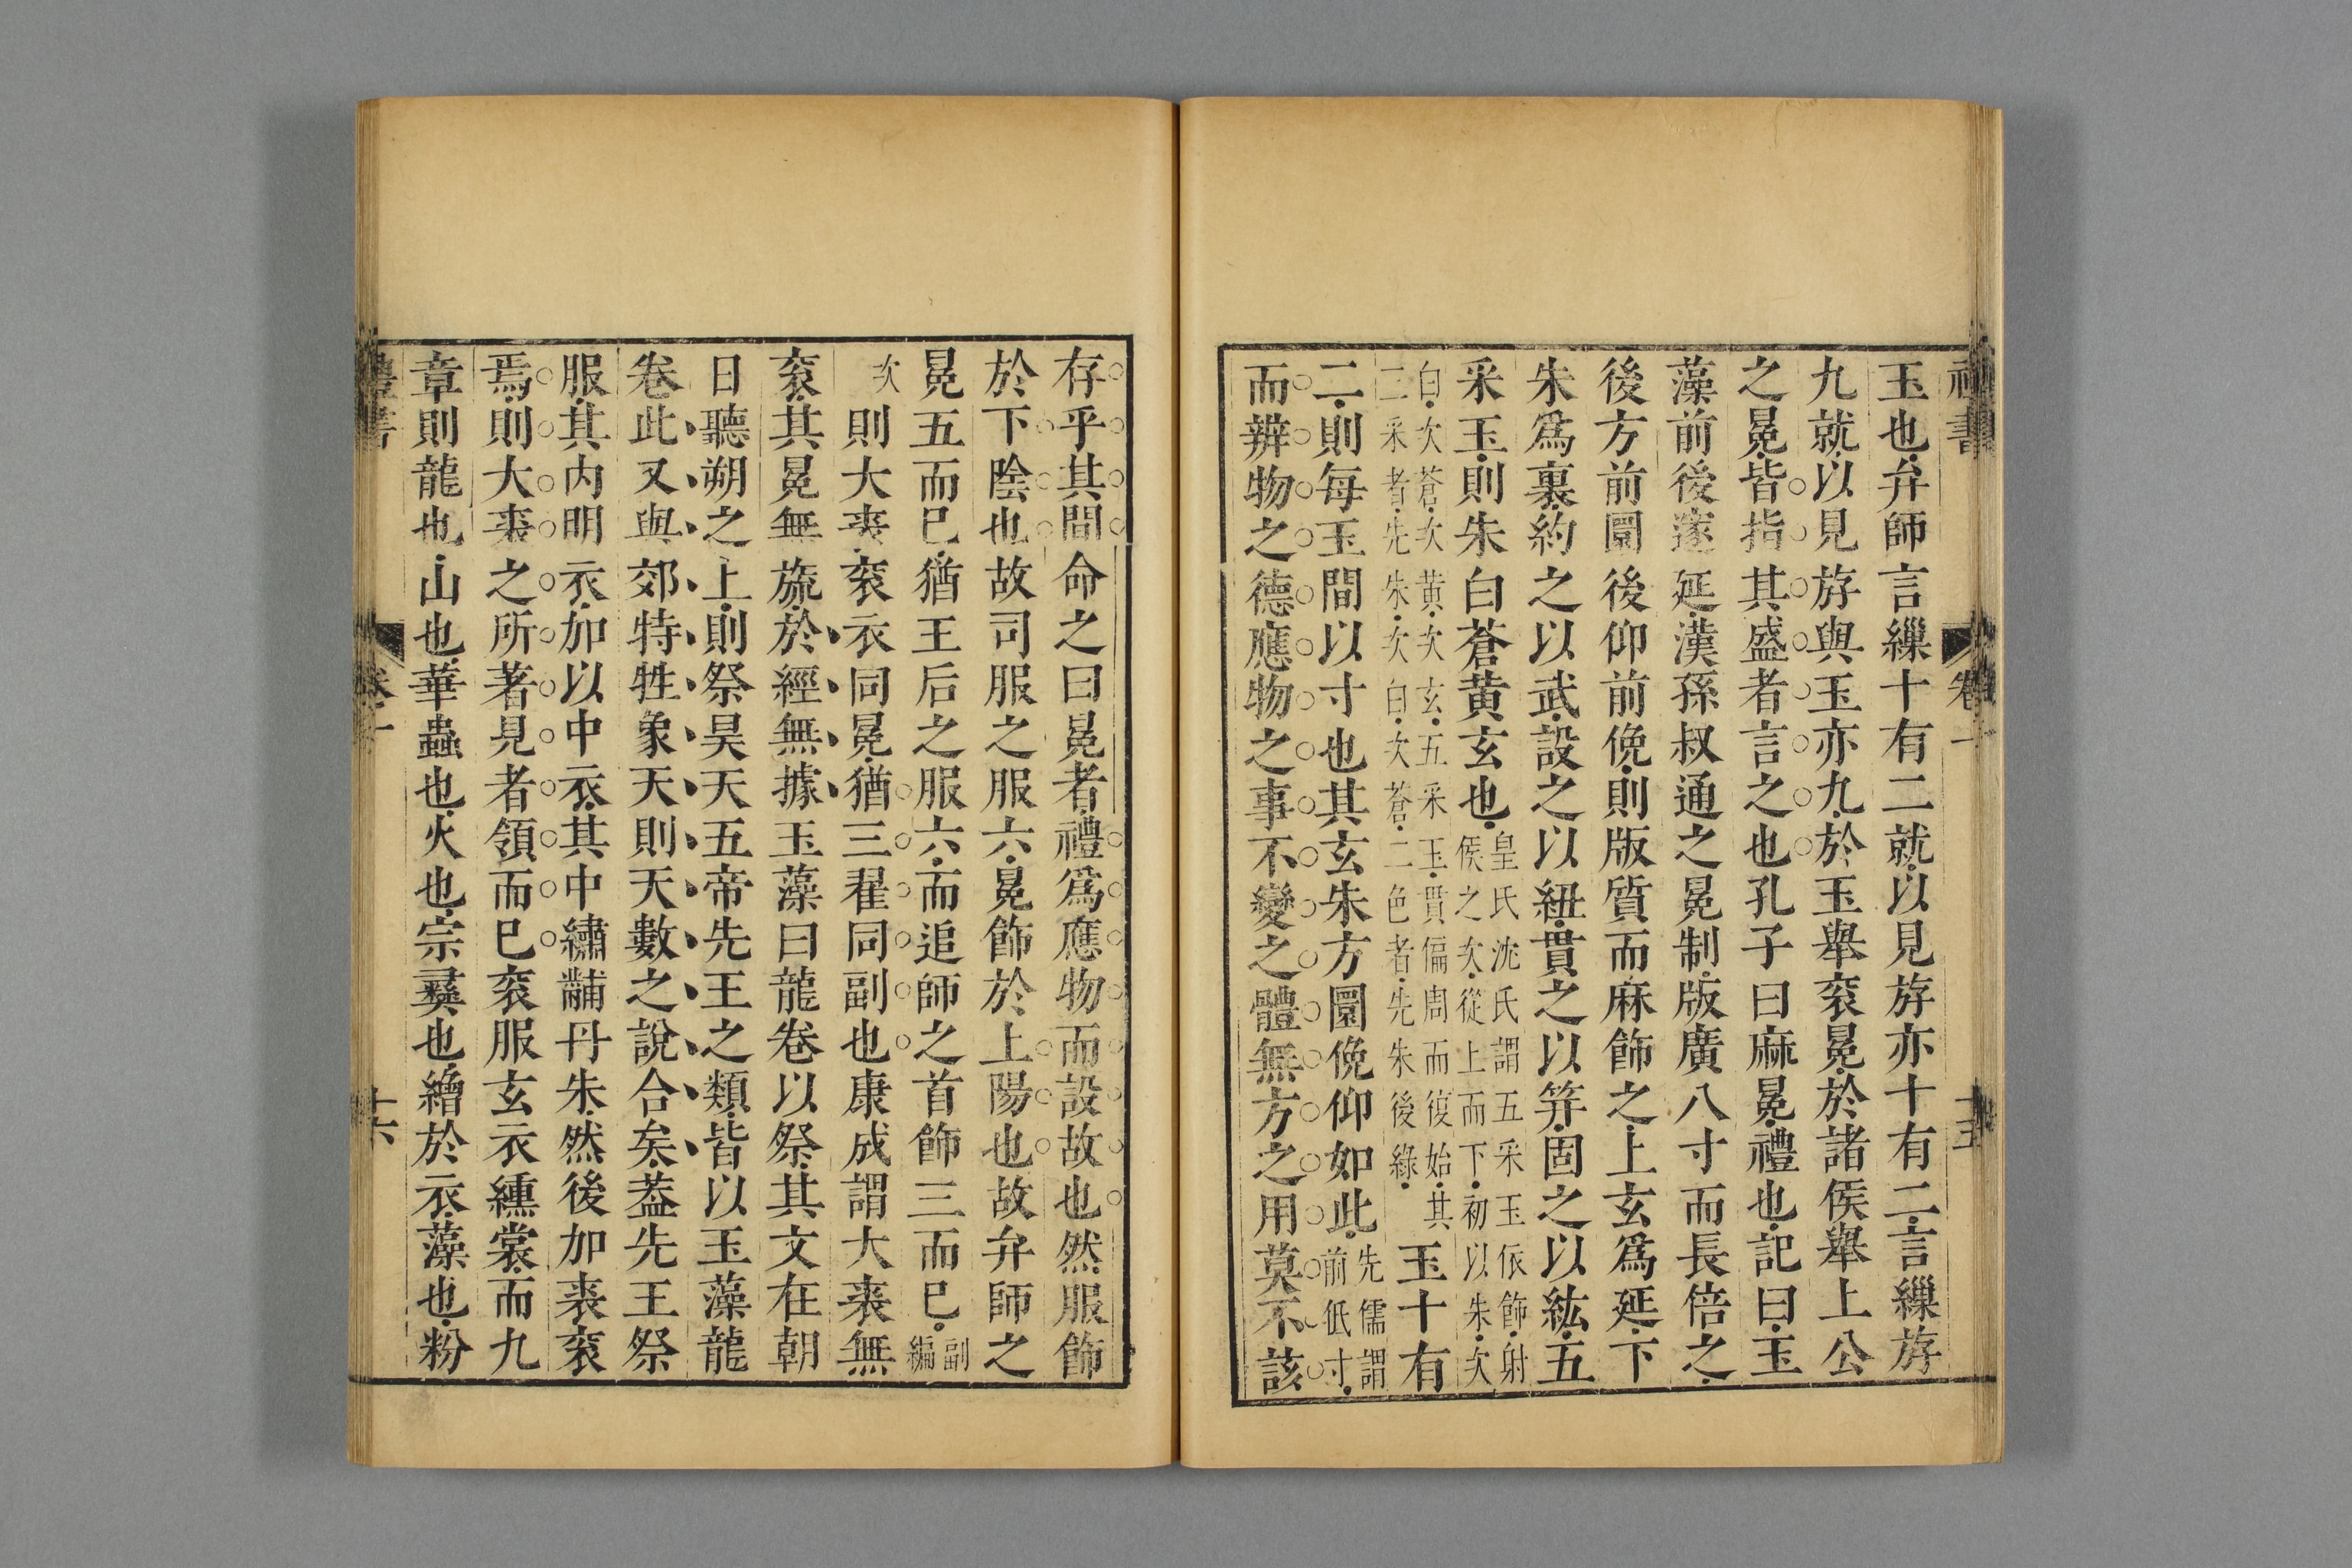 玉也弁師言繅十有二就以見斿亦十有二言繅斿
九就以見斿與玉亦九於玉舉袞冕於諸侯舉上公
之冕皆指其盛者言之也孔子曰麻冕禮也記曰玉
藻前後邃延漢孫叔通之冕制版廣八寸而長倍之
後方前圜後仰前俛則版質而麻飾之上玄爲延下
朱爲裏約之以武設之以紐貫之以笄固之以紘五
采玉則朱白蒼黄玄也皇氏沈氏謂五采玉依飾射
侯之次從上而下初以朱次
白次蒼次黄次玄五采玉貫徧周而復始其
二采者先朱次白次蒼二色者先朱後綠玉十有
二則每玉間以寸也其玄朱方圜俛仰如此先儒謂
前低寸
而辨物之德應物之事不變之體無方之用莫不該
存乎其間命之曰冕者禮爲應物而設故也然服飾
於下陰也故司服之服六冕飾於上陽也故弁師之
冕五而已猶王后之服六而追師之首飾三而已副
編
次則大裘袞衣同冕猶三翟同副也康成謂大裘無
袞其冕無旒於經無據玉藻曰龍卷以祭其文在朝
日聽朔之上則祭昊天五帝先王之類皆以玉藻龍
卷此又與郊特牲象天則天數之說合矣葢先王祭
服其内明衣加以中衣其中繡黼丹朱然後加裘袞
焉則大裘之所著見者領而已袞服玄衣纁裳而九
章則龍也山也華蟲也火也宗彞也繪於衣藻也粉
禮書
卷十
十六